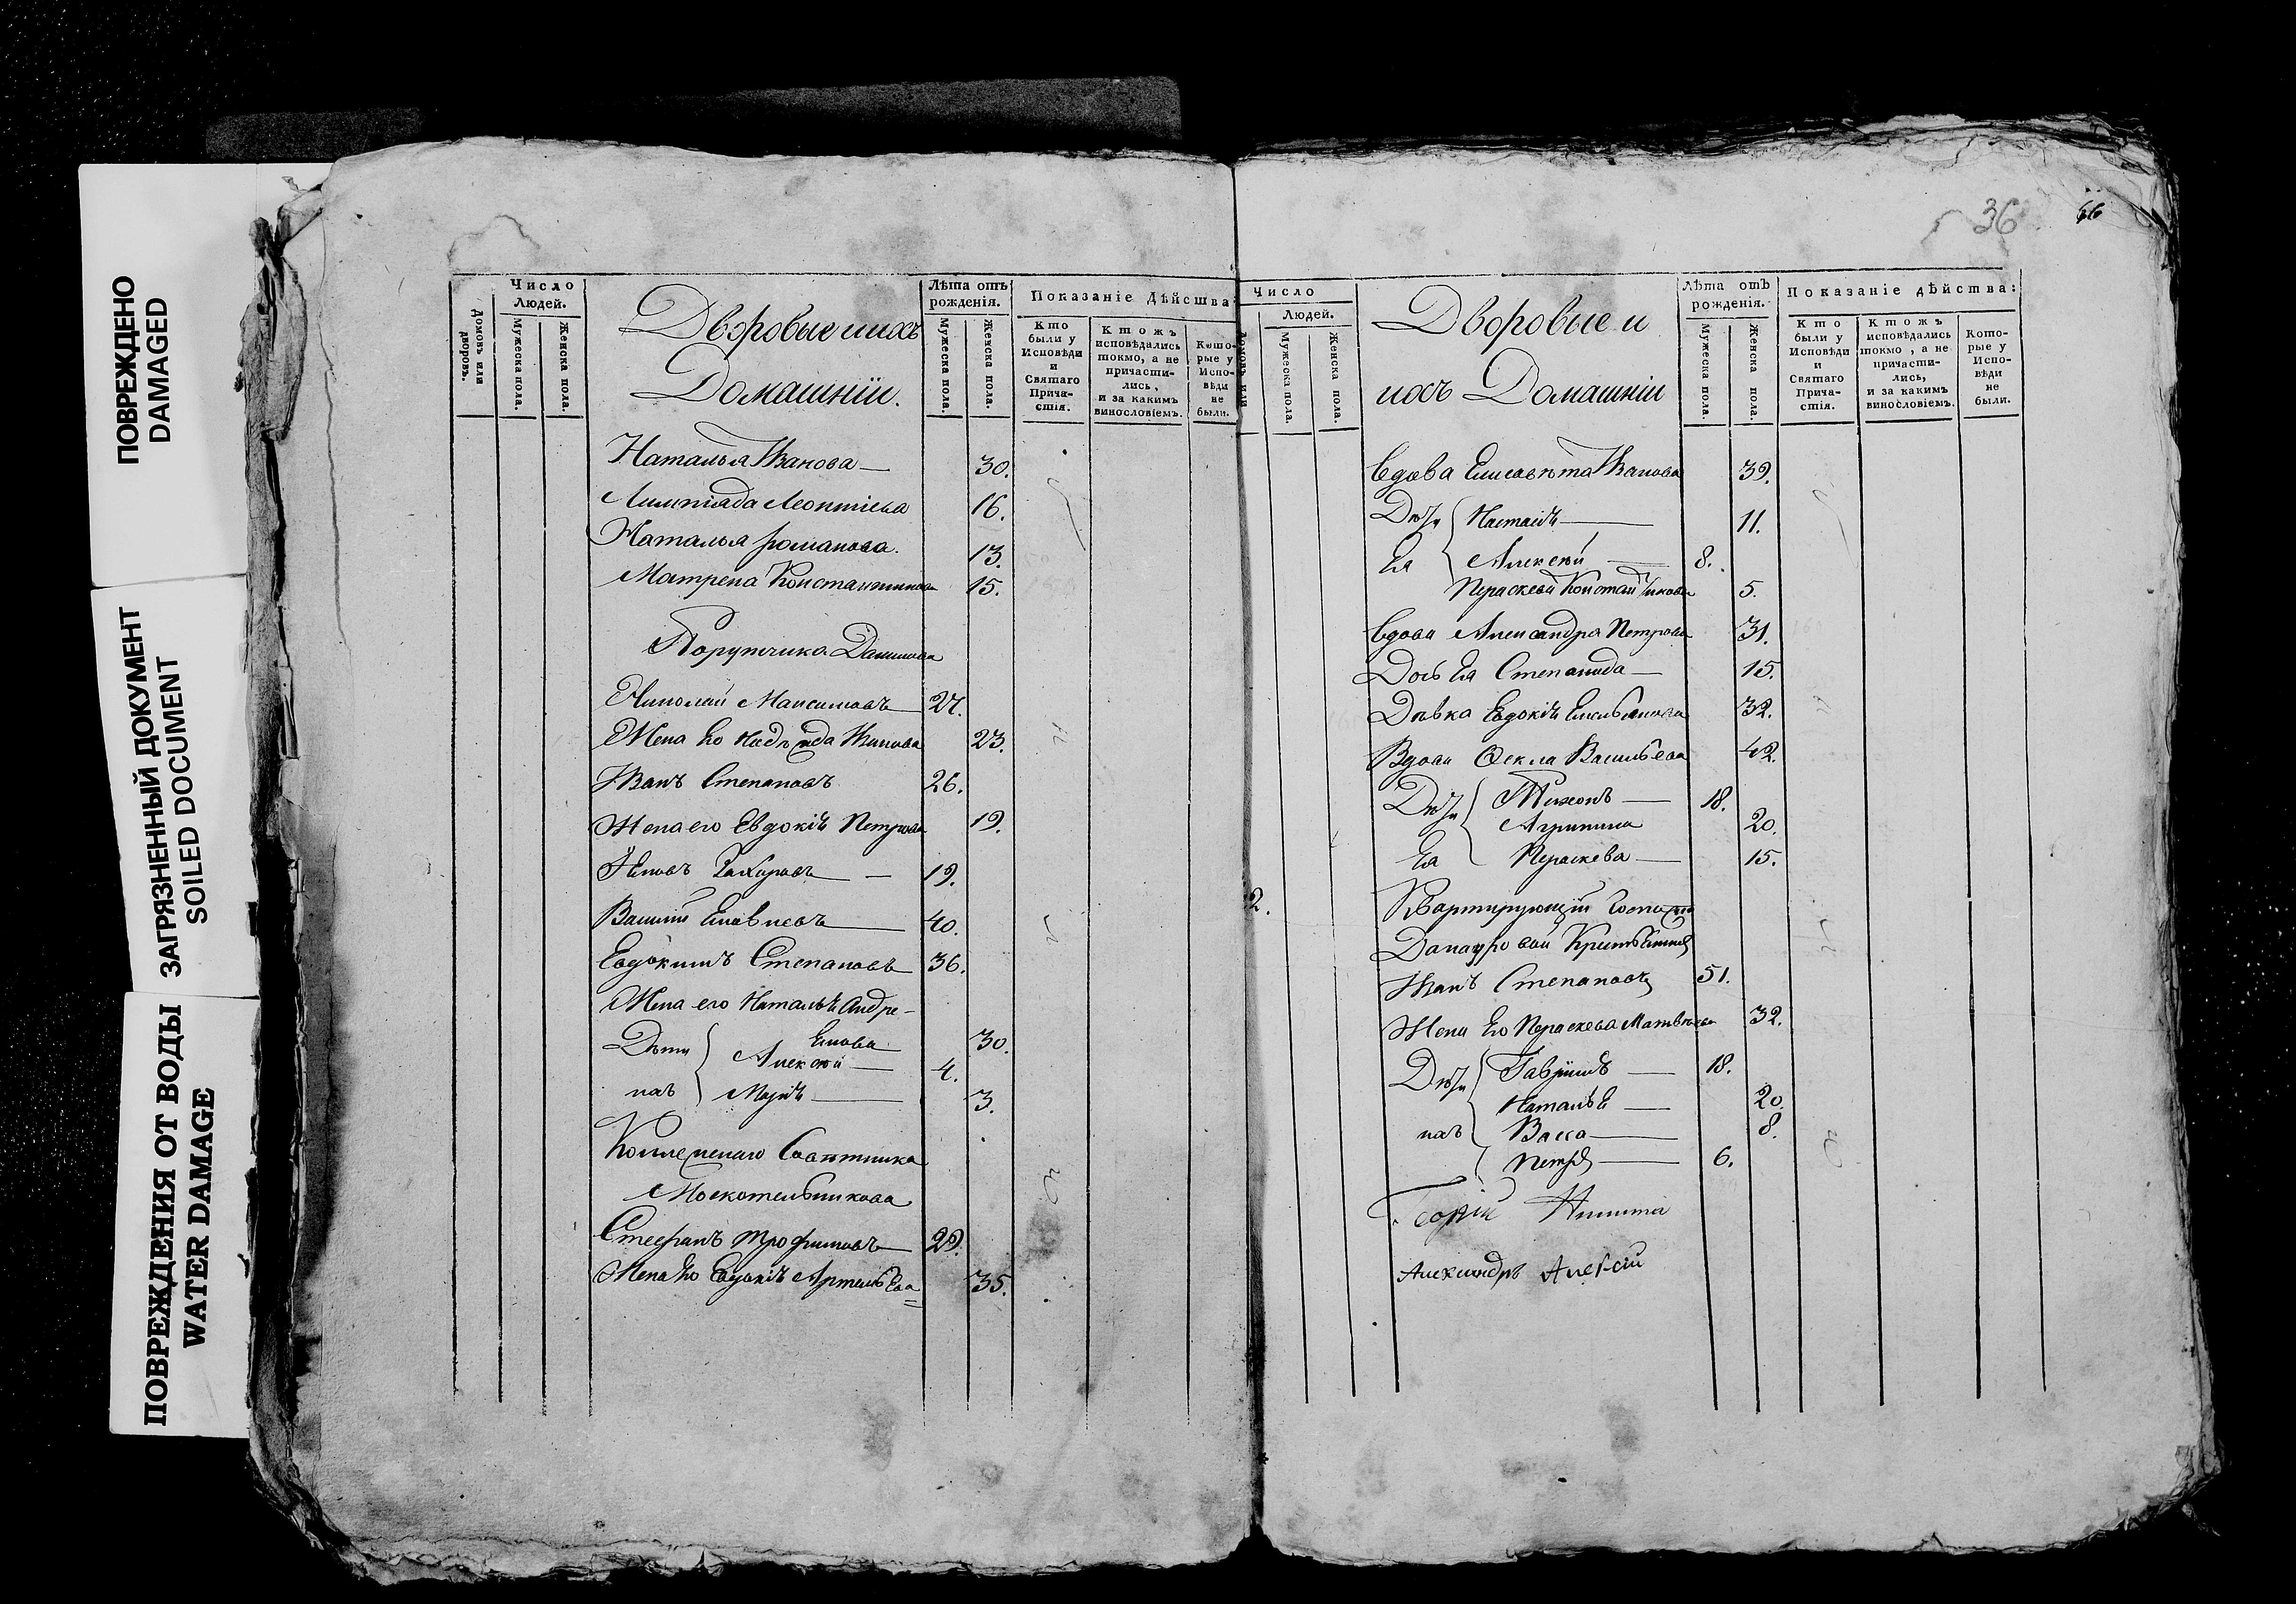 ПОВРЕЖДЕНО
DAMAGED
ЗАГРЯЗНЕННЫЙ ДОКУМЕНТ
SOILED DOCUMENT
ПОВРЕЖДЕНИЯ ОТ ВОДЫ
WATER DAMAGE
Домовъ или дворовъ.
Число
Людей.
Мужеска пола.
Женска пола.
Дворовые иихъ
Домашніи.
Лѣта отъ
рожденія.
Мужеска пола.
Женска пола.
Показаніе Дѣйства
Кто
были у
Исповѣди
и
Святаго
Прича-
стія.
Ктожъ
исповѣдались
токмо, а не
причасти-
лись,
и за какимъ
винословіемъ.
Кото-
рые у
Испо-
вѣди
не
были.
Наталья Иванова 30.
Лимпіада Леонтіева 16.
Наталья романова. 13.
Матрена Константинова 15.
Порутчика Данилова
Николай Максимовъ 27.
Жена Его Надежда Иванова 23.
Иванъ Степановъ 26.
Жена его Евдокія Петрова 19.
Яковъ Захаровъ 19.
Василій 40.
Евдокимъ Степановъ 36.
Жена его Наталья Андре-
евова 30.
Дѣти Алексѣй 4.
ихъ Марія 3.
Коллежскаго Совѣтника
Москотельникова
Стефанъ Трофимовъ 29.
Жена Его Евдокія Артемьева 35.
36
66
Домовъ или
Число
Людей.
Мужеска пола.
Женска пола.
Дворовые и
ихъ Домашніи
Лѣта отъ
рожденія.
Мужеска пола.
Женска пола.
Показаніе дѣйства:
Кто
были у
Исповѣди
и
Святаго
Прича-
стія.
Ктожъ
исповѣдались
токмо, а не
причасти-
лись,
и за какимъ
винословіемъ.
Кото-
рые у
Испо-
вѣди
не
были.
Вдова Елисавѣта Иванова 39.
Дѣти Настасія 11.
Ея Алексѣй 8.
Параскева Константинова 5.
Вдова Александра Петрова 31.
Дочь Ея Степанида 15.
Дѣвка Евдокія Емельянова 32.
Вдова Ѳекла Васильева 42.
Дѣти Тихонъ 18.
Агрипина 20.
Ея Параскева 15.
2. Квартирующій Госпожи
Крестьянинъ
Иванъ Степановъ 51.
Жена Его Параскева Матвѣева 32.
Дѣти Гавріилъ 18.
Наталья 20.
ихъ Васса 8.
Петръ 6.
Георгій Никита
Александръ Алексій